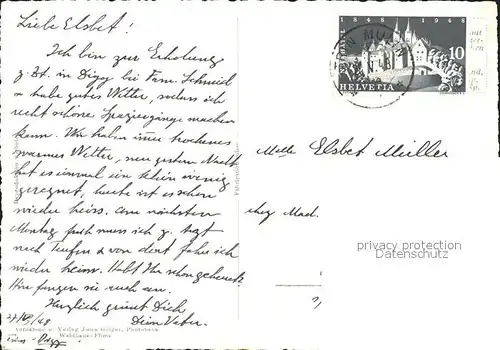 Liebe Elsbet!
Ich bin zur Erholung
z. Zt. in bei Fam. Schmid
& habe gutes Wetter, sodass ich
recht schöne Spaziergänge machen
kann. Wir haben immer trockenes
warmes Wetter, nur gestern Nacht
hat es einmal ein klein wenig
geregnet, heute ist es schon
wieder heiss. Am nächsten
Montag früh muss ich z. Arzt
nach Teufen & von dort fahre ich
wieder heim. Habt Ihr schon geheuet
Hier fangen sie auch an.
Herzlich grüsst Dich
Dein Vater.
1848 1948
10
HELVETIA
Melle Elsbet Müller
chez Mad.
privacy protection
Datenschutz
Waldhaus-Flims